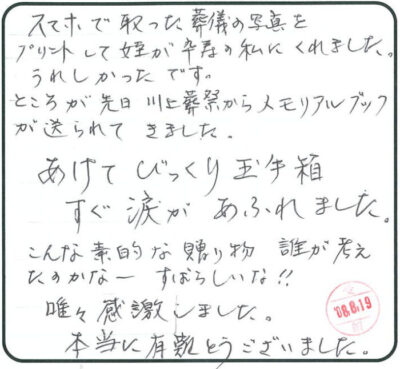 スマホで取った葬儀の写真を
プリントして姪が卒寿の私にくれました。
うれしかったです。
ところが先日 川上葬祭からメモリアルブック
が送られて きました。
あけて びっくり玉手箱
すぐ 涙が あふれました。
こんな素的な贈り物 誰が考え
たのかなー すばらしいな!!
唯々感激しました。
'08.8.19
本当に有難とうございました。